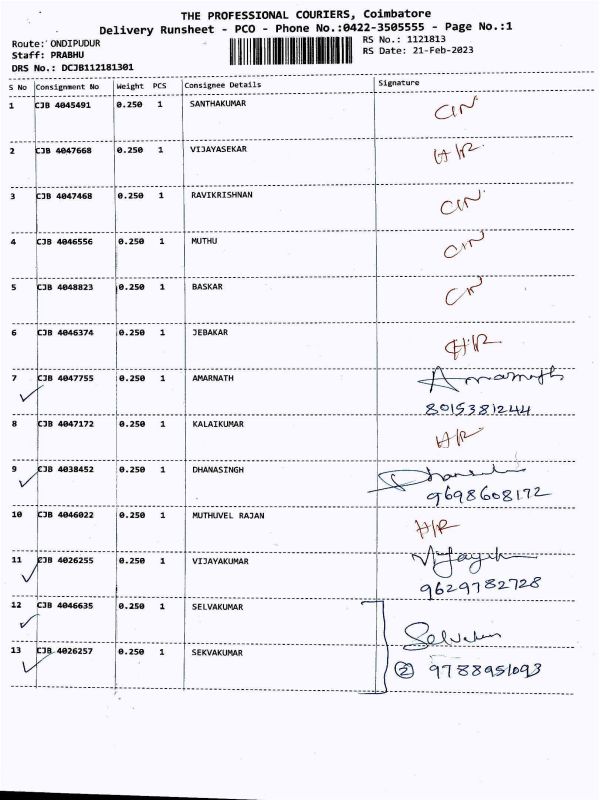 THE PROFESSIONAL COURIERS, Coimbatore
Delivery Runsheet - PCO - Phone No.:0422-3505555 - Page No.:1
Route: ONDIPUDUR
RS No.: 1121813
Staff: PRABHU
RS Date: 21-Feb-2023
DRS No.: DCJB112181301
S No Consignment No Weight PCS Consignee Details Signature
1 CJB 4045491 0.250 1 SANTHAKUMAR CIN
2 CJB 4047668 0.250 1 VIJAYASEKAR H/R
3 CJB 4047468 0.250 1 RAVIKRISHNAN CIN
4 CJB 4046556 0.250 1 MUTHU CIN
5 CJB 4048823 0.250 1 BASKAR CIN
6 CJB 4046374 0.250 1 JEBAKAR H/R
7 CJB 4047755 0.250 1 AMARNATH Amarnath
8015381244
8 CJB 4047172 0.250 1 KALAIKUMAR H/R
9 CJB 4038452 0.250 1 DHANASINGH
9698608172
10 CJB 4046022 0.250 1 MUTHUVEL RAJAN H/R
11 CJB 4026255 0.250 1 VIJAYAKUMAR
9629782728
12 CJB 4046635 0.250 1 SELVAKUMAR
Selvakum
13 CJB 4026257 0.250 1 SEKVAKUMAR
2 9788951093